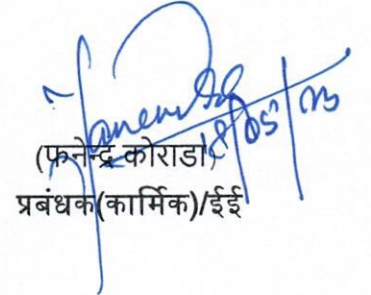 18/05/23
(फनेन्द्र कोराडा)
प्रबंधक(कार्मिक)/ईई